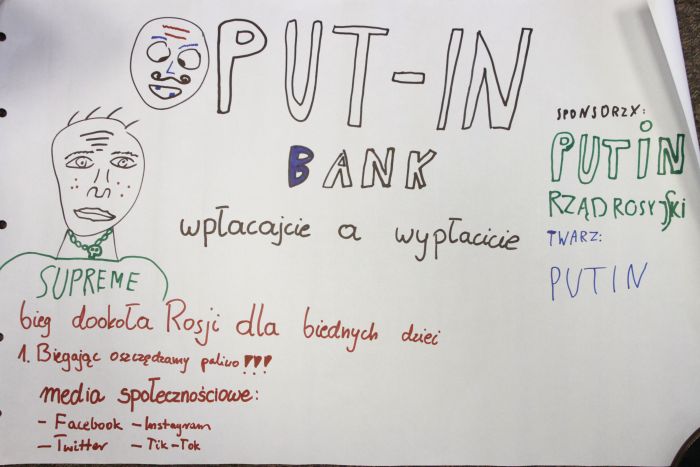 PUT-IN
BANK
wpłacajcie a wypłacicie
SPONSORZY:
PUTIN
RZĄD ROSYJSKI
TWARZ:
PUTIN
SUPREME
bieg dookoła Rosji dla biednych dzieci
1. Biegając oszczędzamy paliwo!!!
media społecznościowe:
- Facebook - Instagram
- Twitter - Tik-Tok